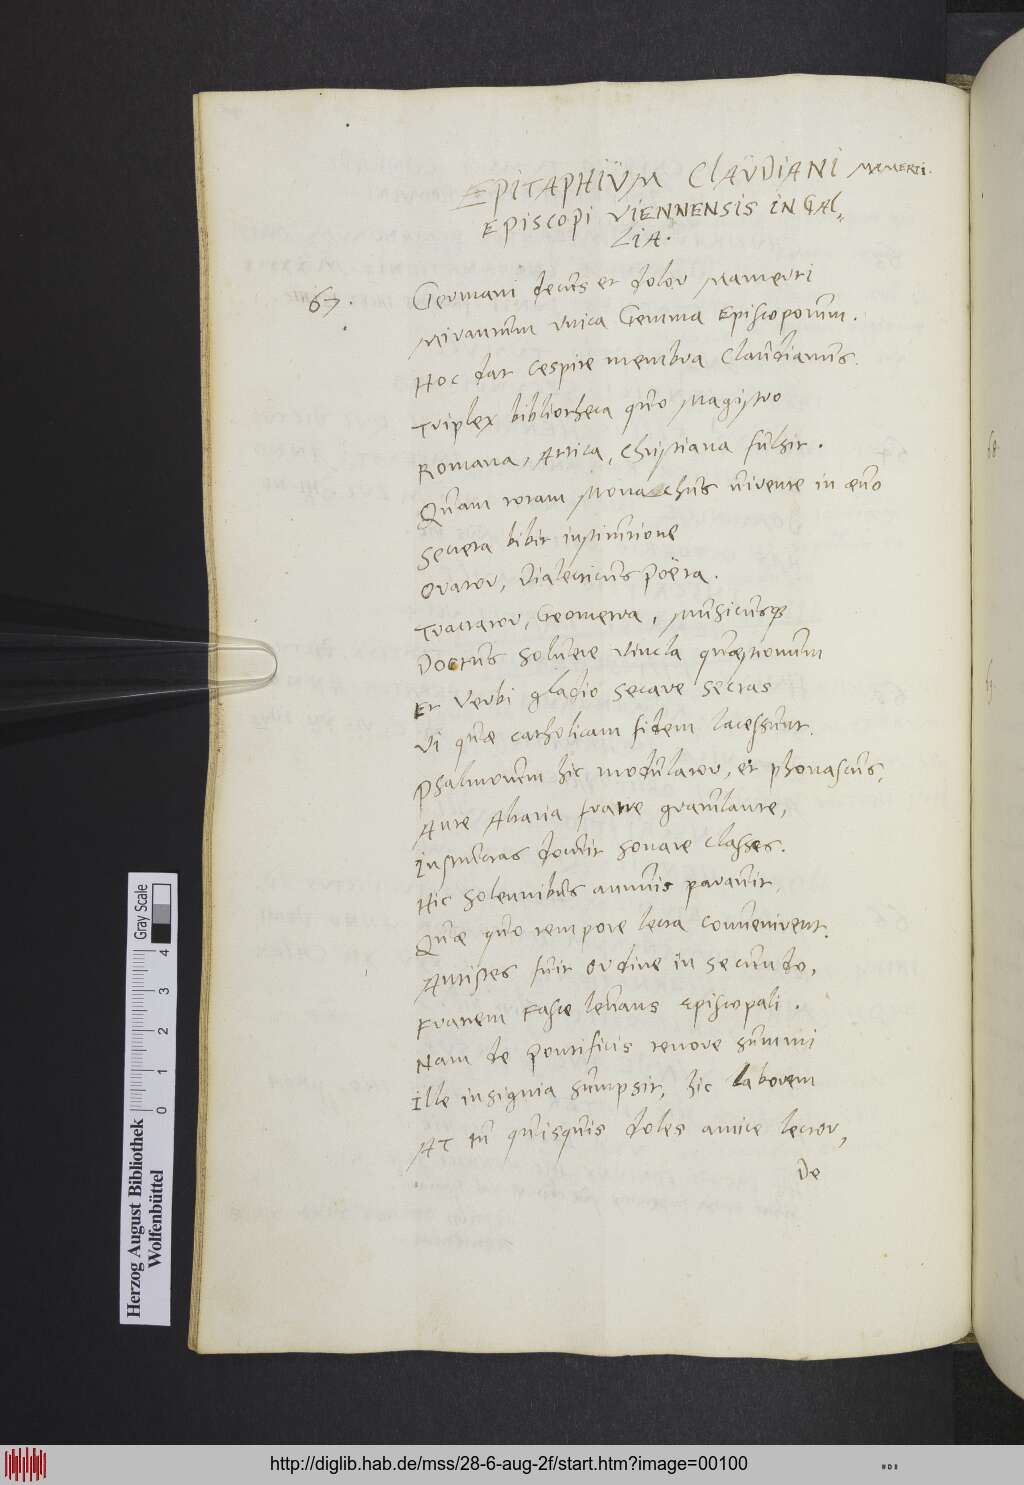 EPITAPHIÜM ClAÜDIANI MAMERTI.
EPISCOPI VIENNENSIS IN GAL„
LIA.
67. Germani decus et dolor Mamerti
Mirantum vnica Gemma Episcoporum.
Hoc dat Cespite membra Claudianus.
Triplex bibliotheca quo Magistro
Romana, Attica, Christiana fulsit.
Quam totam Monachus uirente in æuo
Secreta bibit institutione
Orator, Dialecticus Poëta.
Tractator, Geometra, Musicusq
Doctus soluere vincla quæstionum
Et Verbi gladio secare sectas
Vi quæ catholicam fidem lacessunt.
Psalmorum hic modulator, et phonascus,
Ante Altaria fratre gratulante,
Instructas docuit sonare Classes.
Hic solennibus annuis parauit,
Quæ quo tempore lecta conuenirent.
Antistes fuit ordine in secundo,
Fratrem Fasce leuans Episcopali.
Nam de pontificis tenore summi
Ille insignia sumpsit, hic laborem
At tu quisquis doles amice lector,
De
68
69
Herzog August Bibliothek
Wolfenbüttel
Gray Scale
0 1 2 3 4
http://diglib.hab.de/mss/28-6-aug-2f/start.htm?image=00100